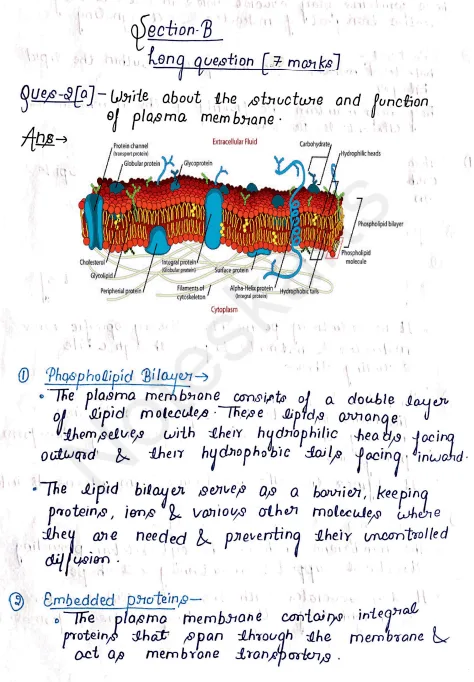 Section-B
Long question [7 marks]
Ques-2[a]- Write about the structure and function
of plasma membrane.
Ans→
Protein channel
(transport protein)
Globular protein
Glycoprotein
Extracellular Fluid
Carbohydrate
Hydrophilic heads
Phospholipid bilayer
Phospholipid
molecule
Cholesterol
Glycolipid
Peripherial protein
Integral protein
(Globular protein)
Filaments of
cytoskeleton
Surface protein
Alpha-Helix protein
(Integral protein)
Hydrophobic tails
Cytoplasm
① Phospholipid Bilayer→
• The plasma membrane consists of a double layer
of lipid molecules. These lipids arrange
themselves with their hydrophilic heads facing
outward & their hydrophobic tails facing inward.
• The lipid bilayer serves as a barrier, keeping
proteins, ions & various other molecules where
they are needed & preventing their uncontrolled
diffusion.
② Embedded proteins—
• The plasma membrane contains integral
proteins that span through the membrane &
act as membrane transporters.